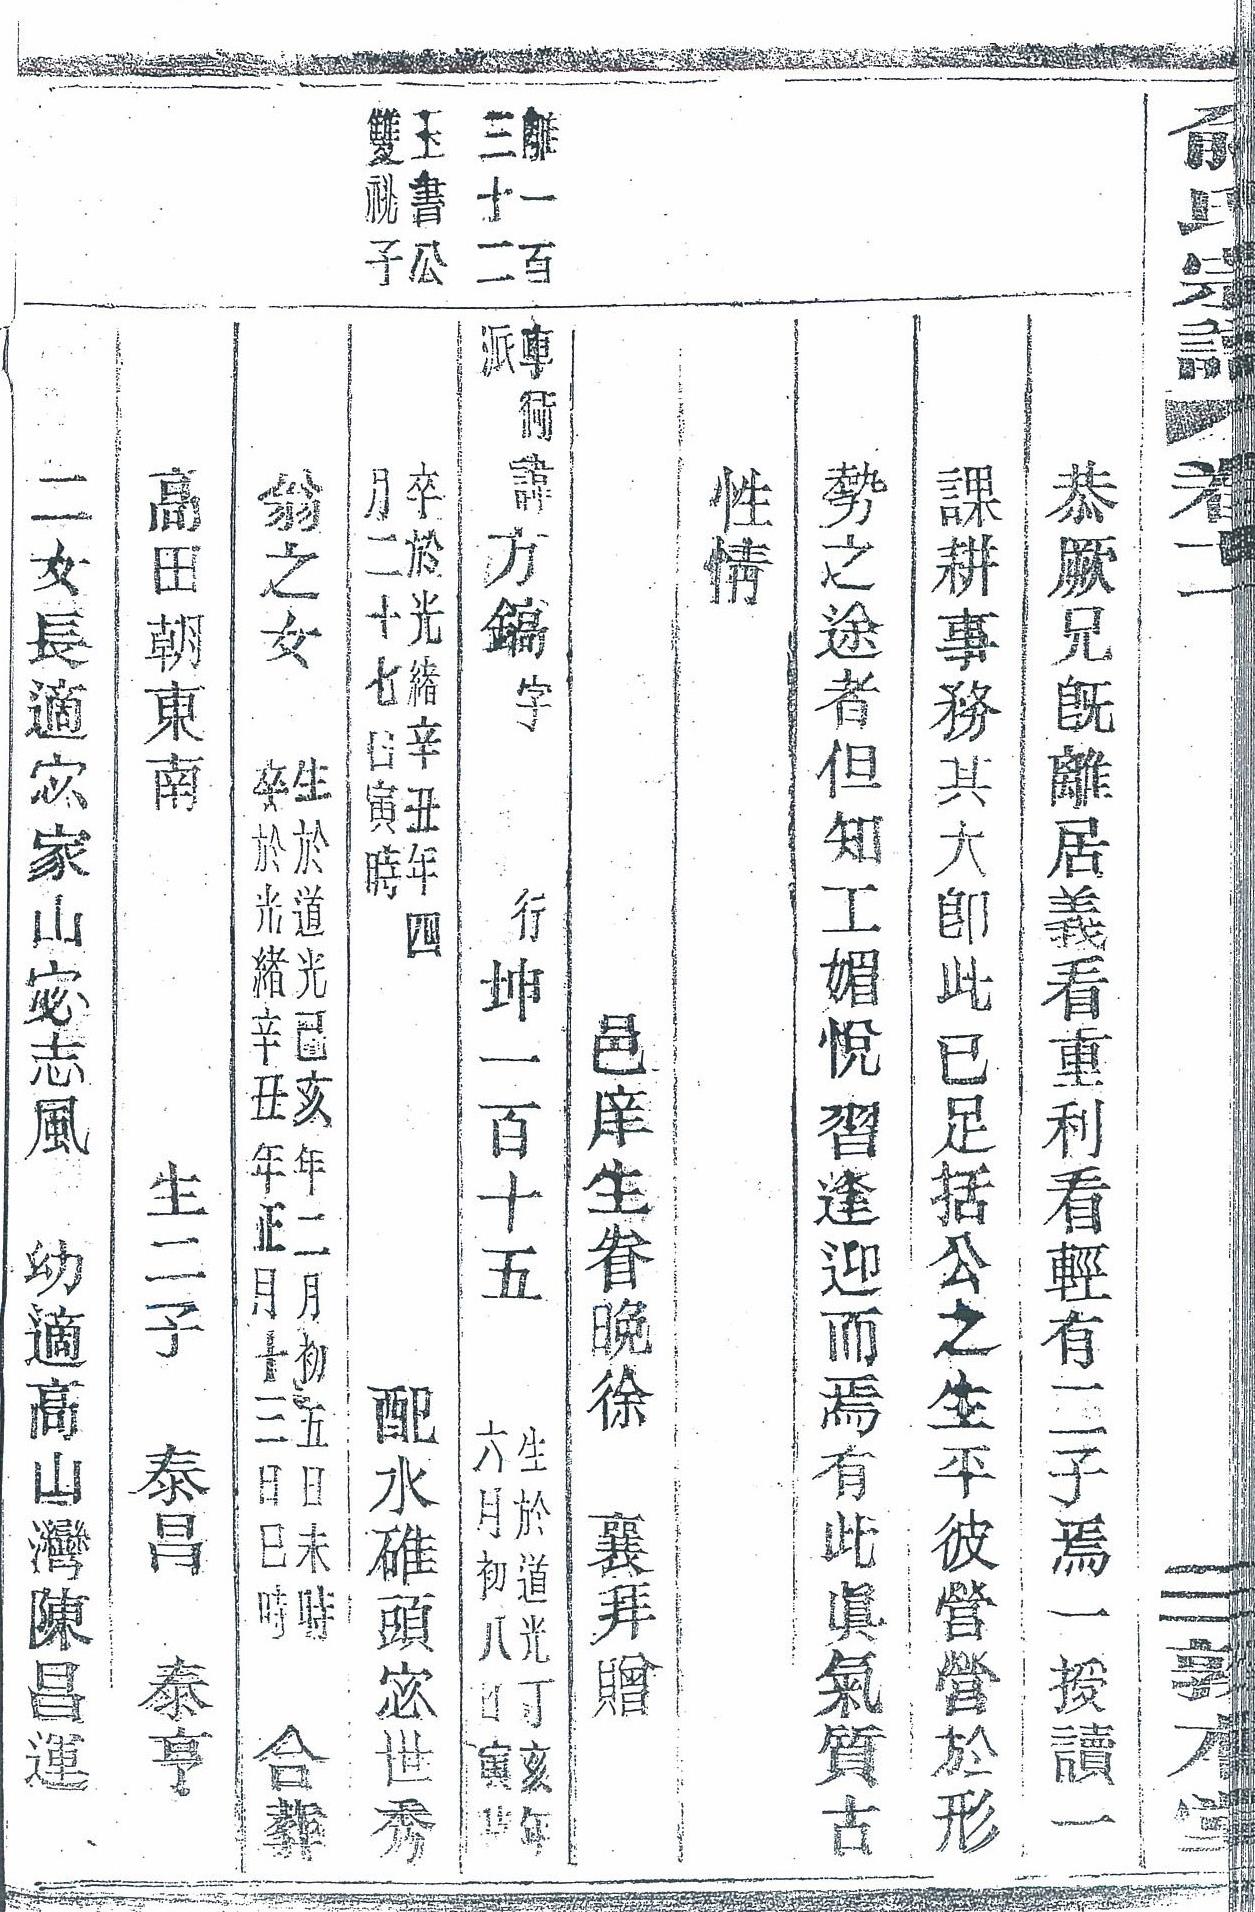 俞氏宗譜 卷二 敦本堂
恭厥兄旣離居義看重利看輕有二子焉一授讀一
課耕事務其大卽此已足括公之生平彼營營於形
勢之途者但知工媚悅習逢迎而焉有此眞氣質古
性情
邑庠生眷晚徐 襄拜贈
離一百
三十二
專衕
派
諱方鎬字 行坤一百十五 生於道光丁亥年
六月初八日寅時
玉書公
雙祧子
卒於光緒辛丑年四
月二十七日寅時 配水碓頭宓世秀
翁之女 生於道光己亥年二月初五日未時
卒於光緒辛丑年正月十三日巳時 合葬
高田朝東南 生二子 泰昌 泰亨
二女長適宓家山宓志風 幼適高山灣陳昌運